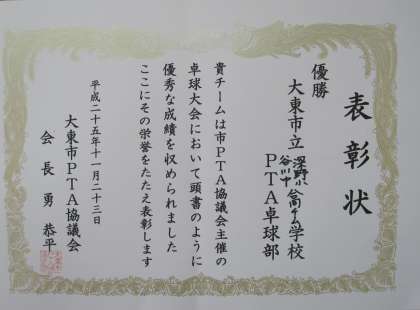 表彰状
優勝
大東市立深野小谷川中合同チーム学校
PTA卓球部
貴チームは市PTA協議会主催の
卓球大会において頭書のように
優秀な成績を収められました
ここにその栄誉をたたえ表彰します
平成二十五年十一月二十三日
大東市PTA協議会
会長 勇 恭平